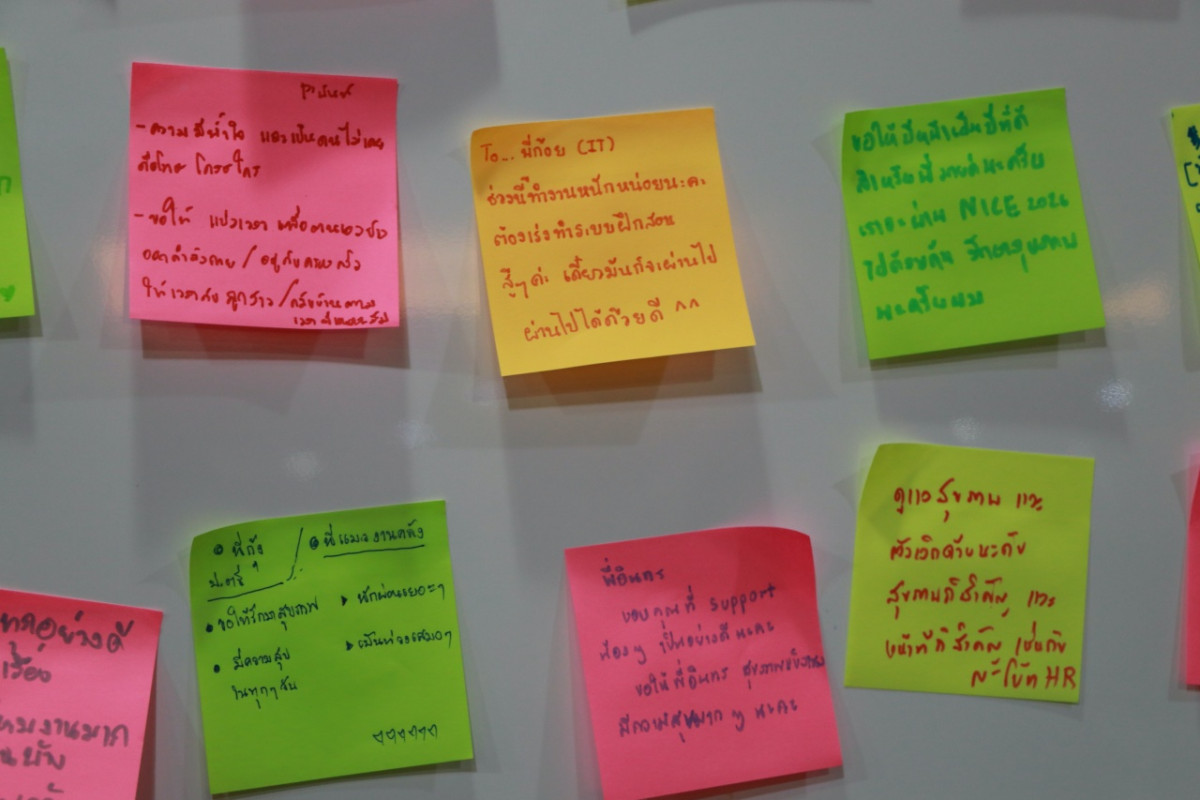 - ความมีน้ำใจ และเป็นคนไม่เคย
ถือโทษ โกรธใคร
- ขอให้ แบ่งเวลา เพื่อตนเองบ้าง
ออกกำลังกาย / อยู่กับครอบครัว
ให้เวลากับ ลูกสาว / กลับบ้านตาม
To... พี่ก้อย (IT)
ช่วงนี้ทำงานหนักหน่อยนะคะ
ต้องเร่งทำระบบฝึกสอน
สู้ๆค่ะ เดี๋ยวมันก็จะผ่านไป
ผ่านไปได้ด้วยดี ^^
ขอให้ปีหน้าเป็นปีที่ดี
เราจะผ่าน NICE 2026
ไปด้วยกัน
นะครับผม
พี่กุ้ง
ขอให้รักษาสุขภาพ
มีความสุข
ในทุกๆวัน
พักผ่อนเยอะๆ
พี่อินทร
ขอบคุณที่ support
น้องๆ เป็นอย่างดีนะคะ
ขอให้พี่อินทร สุขภาพแข็งแรง
มีความสุขมาก ๆ นะคะ
ดูแลสุขภาพ และ
ตัวเองด้วยนะครับ
สุขภาพก็สำคัญ และ
หน้าที่ก็สำคัญ เช่นกัน
HR
อย่างดี
เรื่อง
งานมาก